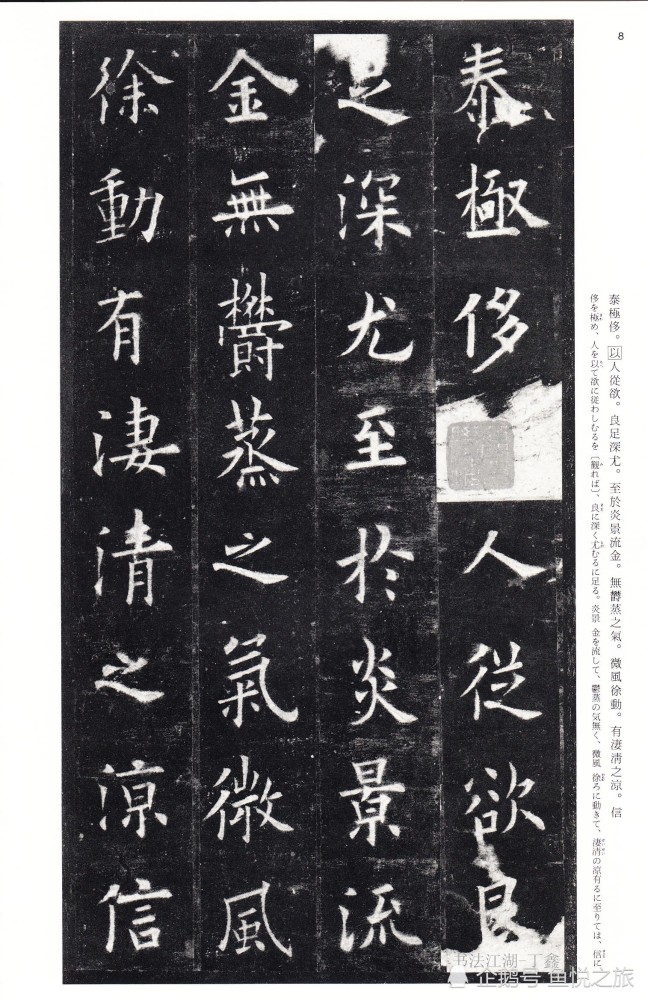 8
泰極侈。以人從欲。良足深尤。至於炎景流金。無欝蒸之氣。微風徐動。有淒淸之涼。信
侈を極め、人を以て欲に従わしむるを〔観れば〕、良に深く尤むるに足る。炎景 金を流して、鬱蒸の気無く、微風 徐ろに動きて、淒清の涼有るに至りては、信に
泰極侈人從欲良
之深尤至於炎景流
金無欝蒸之氣微風
徐動有淒清之涼信
书法江湖-丁鑫
企鹅号 鱼悦之旅